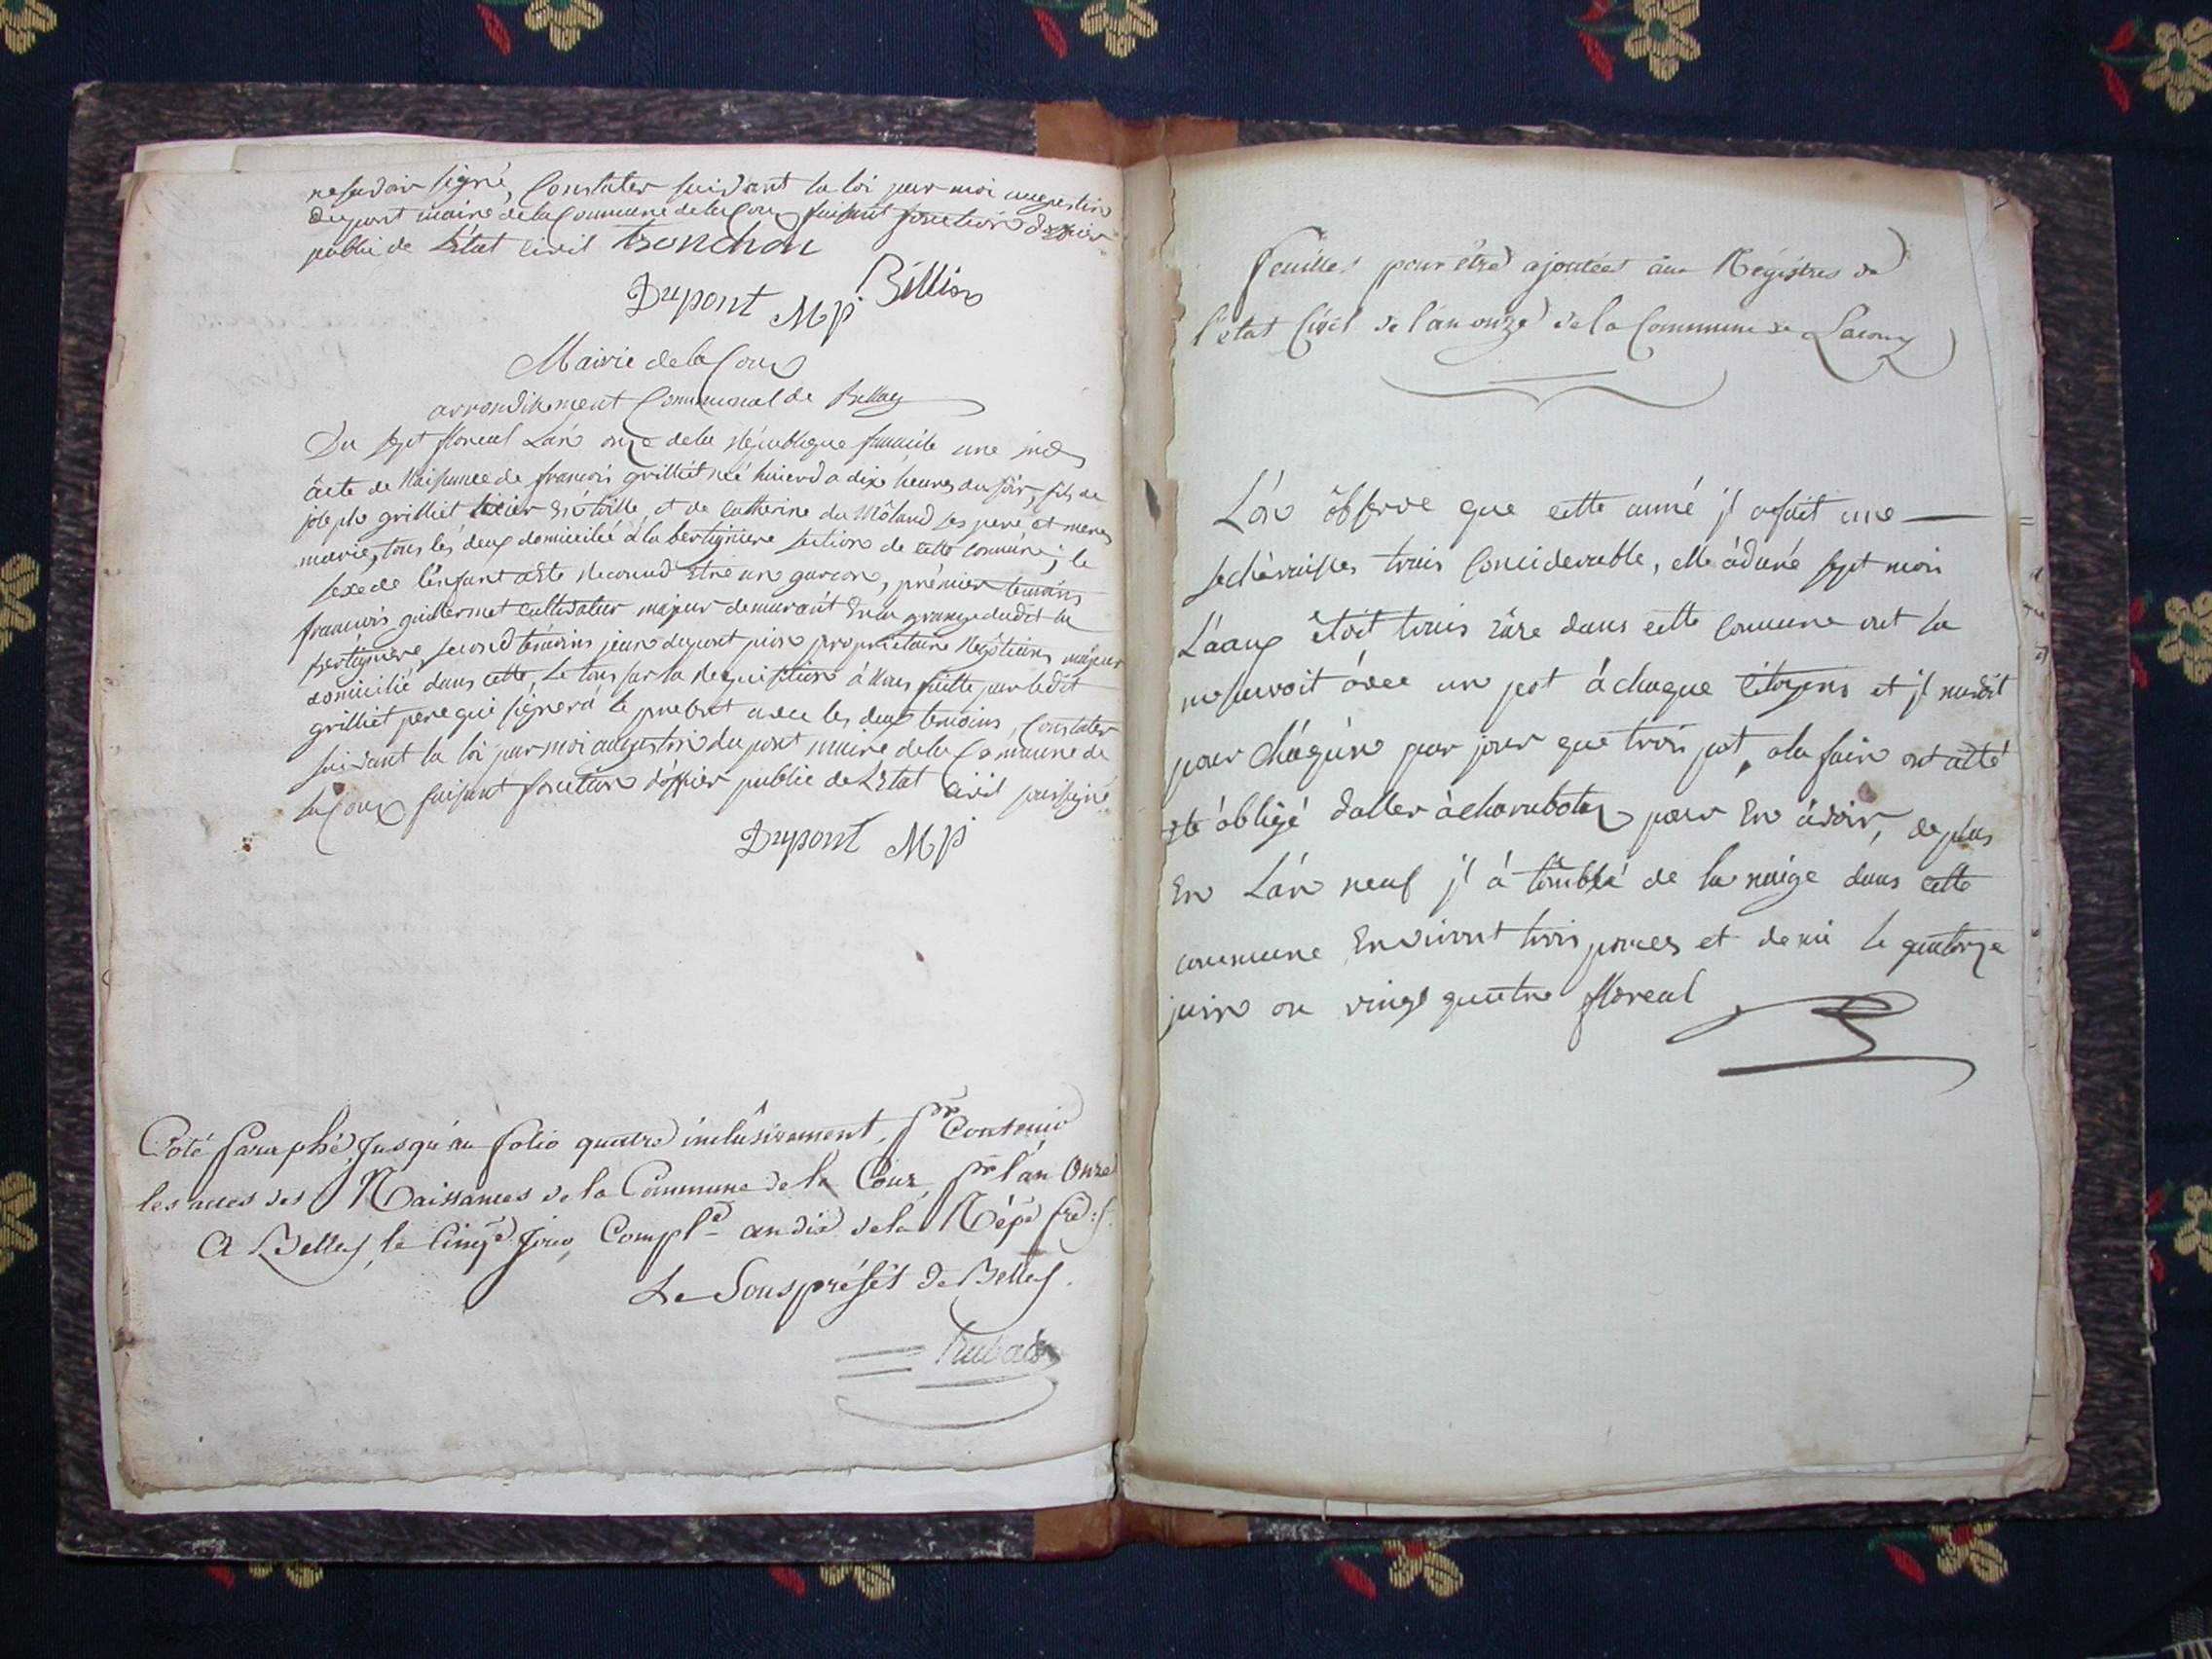 ne savoir signé, Constater suivant la loi par moi augustin
dupont maire de la Commune de la Coux faisant fonction d'officier
public de L'état Civil tronchon
Billion
Dupont Mp
Mairie de la Coux
arrondissement Communal de Bellay
Du sept floreal L'an onze de la République francaise une ind.
âcte de Naissance de francois grilliet né hierd a dix heures du soir, fils de
joseph grilliet En toille, et de Catherine du Môlard ses pere et mere
marie, tous les deux domicilié à la bertiginiere section de cette commune; le
sexe de l'enfant a été Reconnud Etre un garcon, prémier temoins
francois guillermet cultivateur majeur demurant En la grange dudit la
bertigniere, second témoins jean dupont propriétaire Négôtians majeur
domicilié dans cette, Le tous sur la Requisition à Nous faitte par ledit
grilliet pere qui signerá le present avec les deux temoins, Constater
suivant la loi par moi augustin dupont maire de la Commune de
la Coux faisant fonction d'officier public de L'état Civil soussigné
Dupont Mp
Coté Paraphé Jusqu'au folio quatre inclusivement, Pr Contenir
les actes des Naissances de la Commune de la Coux Pr l'an Onze
A Belley, le Cinq.e Jour Compl.re an dix de la Rép.e fr.se
Le Souspréfét de Belley.
Rubat
feuilles pour être ajoutées aux Régistres de
l'état Civil de l'an onze de la Commune de Lacoux
L'ón ôbserve que cette anné jl a fait une
sechéraisse trais Conciderable, elle à duré sept mois
L'áaux êtoit trais rare dans cette commune ont la
mesuroit ávec un pot á chaque Citoyens et jl navoit
pour cháqun par jour que trois pot, a la fain ont até
eté obligé daller à charabotte pour En ávoir, de plus
En L'án neuf jl á tombbé de la naige dans cette
commune Environt trois pouces et demi le quatorze
juin ou vingt quatre floreal